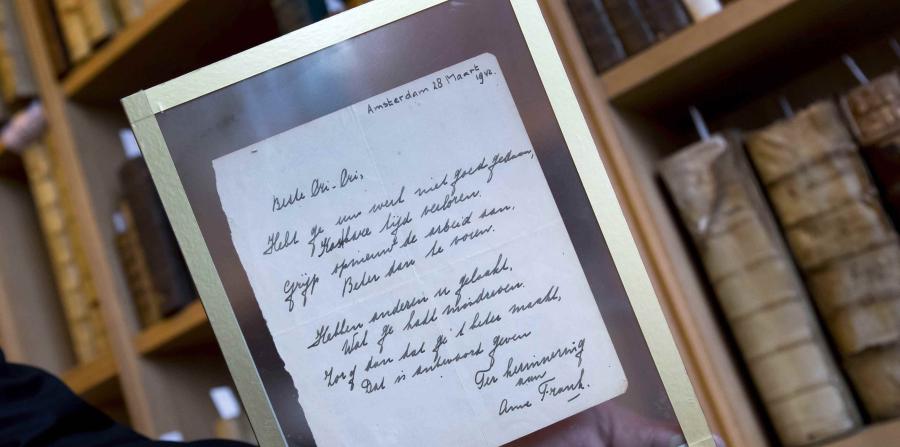 Amsterdam 28 Maart
1942.
Beste Cri-Cri,
Hebt ge uw werk niet goed gedaan,
Kostbare tijd verloren.
Grijp opnieuw de arbeid aan,
Beter dan te voren.
Hebben anderen u gelaakt,
Wat ge hadt misdreven.
Zorg dan dat ge 't beter maakt,
Dat is antwoord geven
Ter herinnering
aan
Anne Frank.